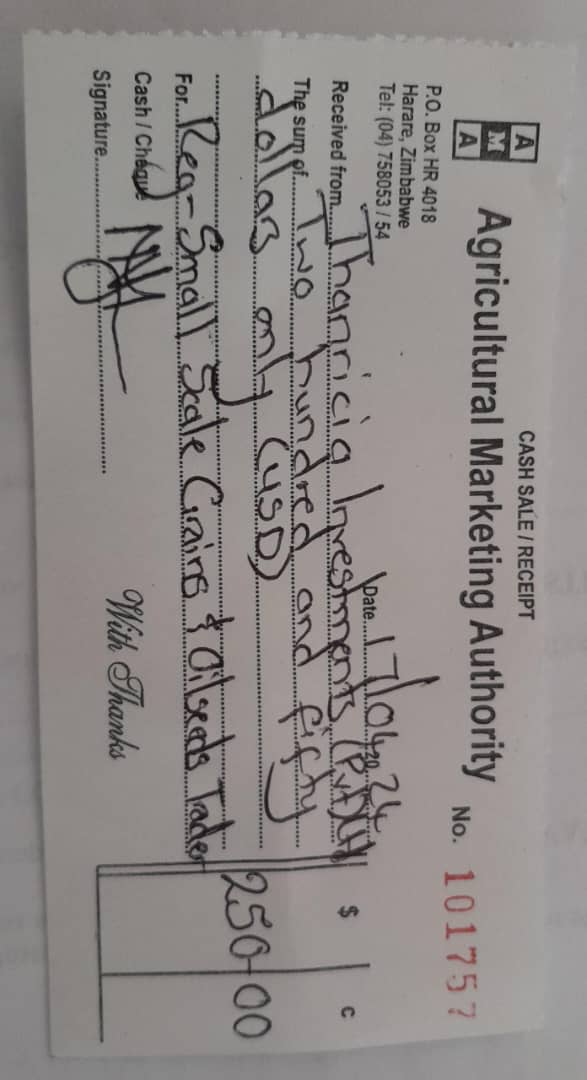 CASH SALE / RECEIPT
A
M
A
Agricultural Marketing Authority
No. 101757
P.O. Box HR 4018
Harare, Zimbabwe
Tel: (04) 758053 / 54
Date 17/04/2024
Received from Thanricia Investments (Pvt) Ltd
$ c
The sum of Two hundred and fifty
dollars only (USD)
250-00
For Reg-Small Scale Grains & Oilseeds Trader
Cash / Cheque
Signature
With Thanks